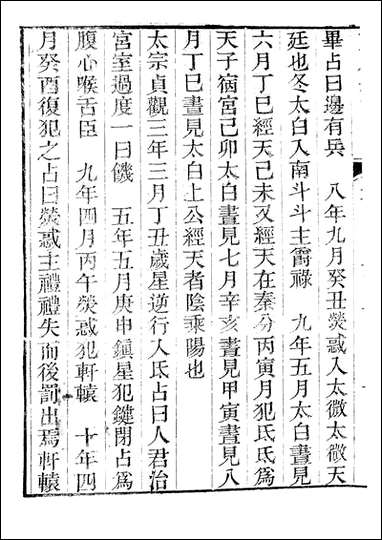 畢占曰邊有兵　八年九月癸丑熒惑入太微太微天
廷也冬太白入南斗斗主爵祿　九年五月太白晝見
六月丁巳經天己未又經天在秦分丙寅月犯氐氐爲
天子宿宮己卯太白晝見七月辛亥晝見甲寅晝見八
月丁巳晝見太白上公經天者陰乘陽也
太宗貞觀三年三月丁丑歲星逆行入氐占曰人君治
宮室過度一曰饑　五年五月庚申鎮星犯鍵閉占爲
腹心喉舌臣　九年四月丙午熒惑犯軒轅　十年四
月癸酉復犯之占曰熒惑主禮禮失而後罰出焉軒轅